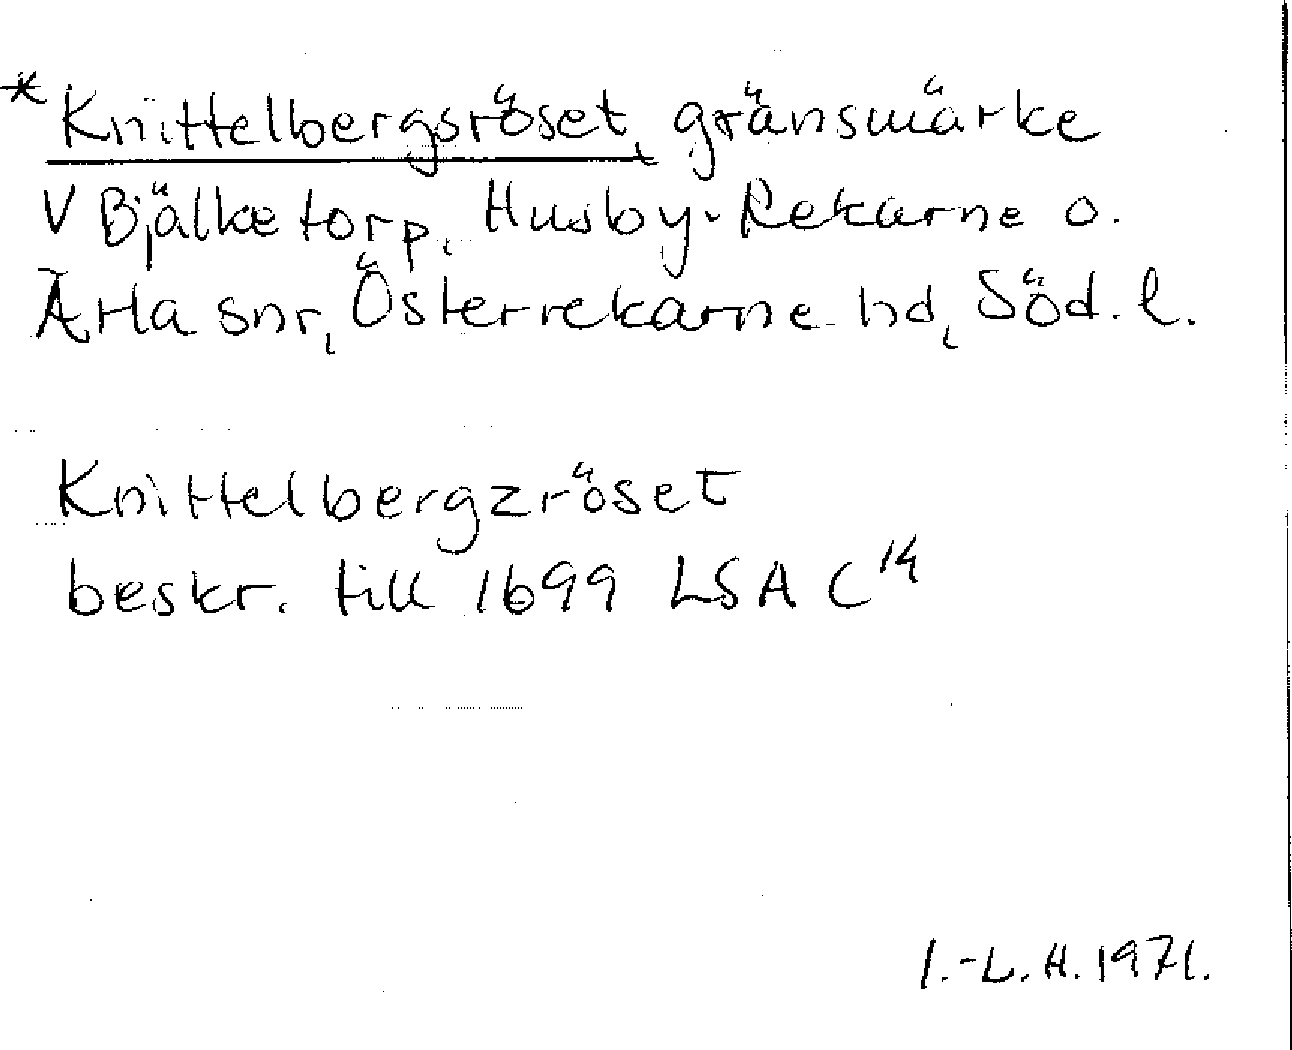 *Knittelbergsröset, gränsmärke
V Bjälketorp, Husby-Rekarne o.
Ärla snr, Österrekarne hd, Söd. l.
Knittelbergzröset
beskr. till 1699 LSA C¹⁴
I.-L. H. 1971.